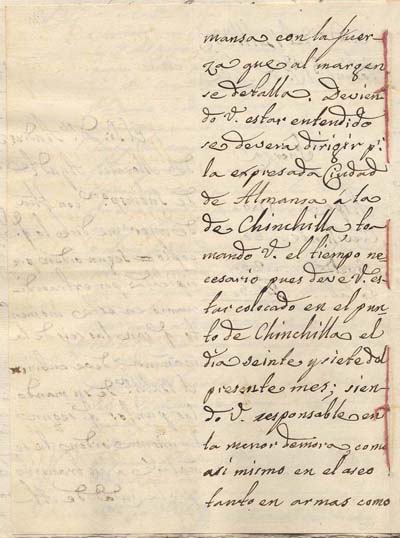 mansa con la fuer-
za que al margen
se detalla. Devien-
do V. estar entendido
se devera dirigir p.r
la expresada Ciudad
de Almansa á la
de Chinchilla to-
mando V. el tiempo ne-
cesario pues deve V. es-
tar colocado en el pun-
to de Chinchilla el
dia veinte y siete del
presente mes; sien-
do V. responsable en
la menor demora, como
asi mismo en el aseo
tanto en armas como